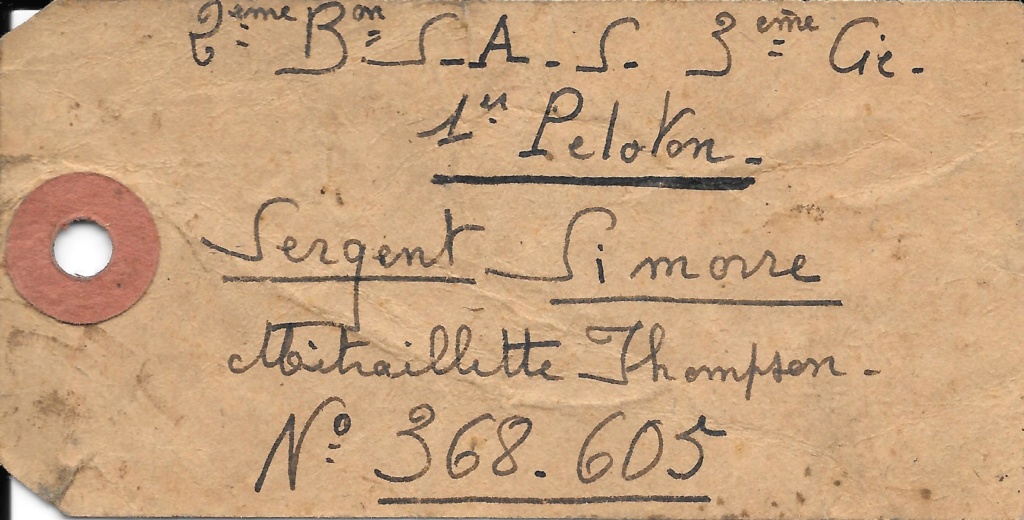 2ème Bon S.A.S. 3ème Cie.
1er Peloton.
Sergent Simorre
Mitraillette Thompson.
No 368.605